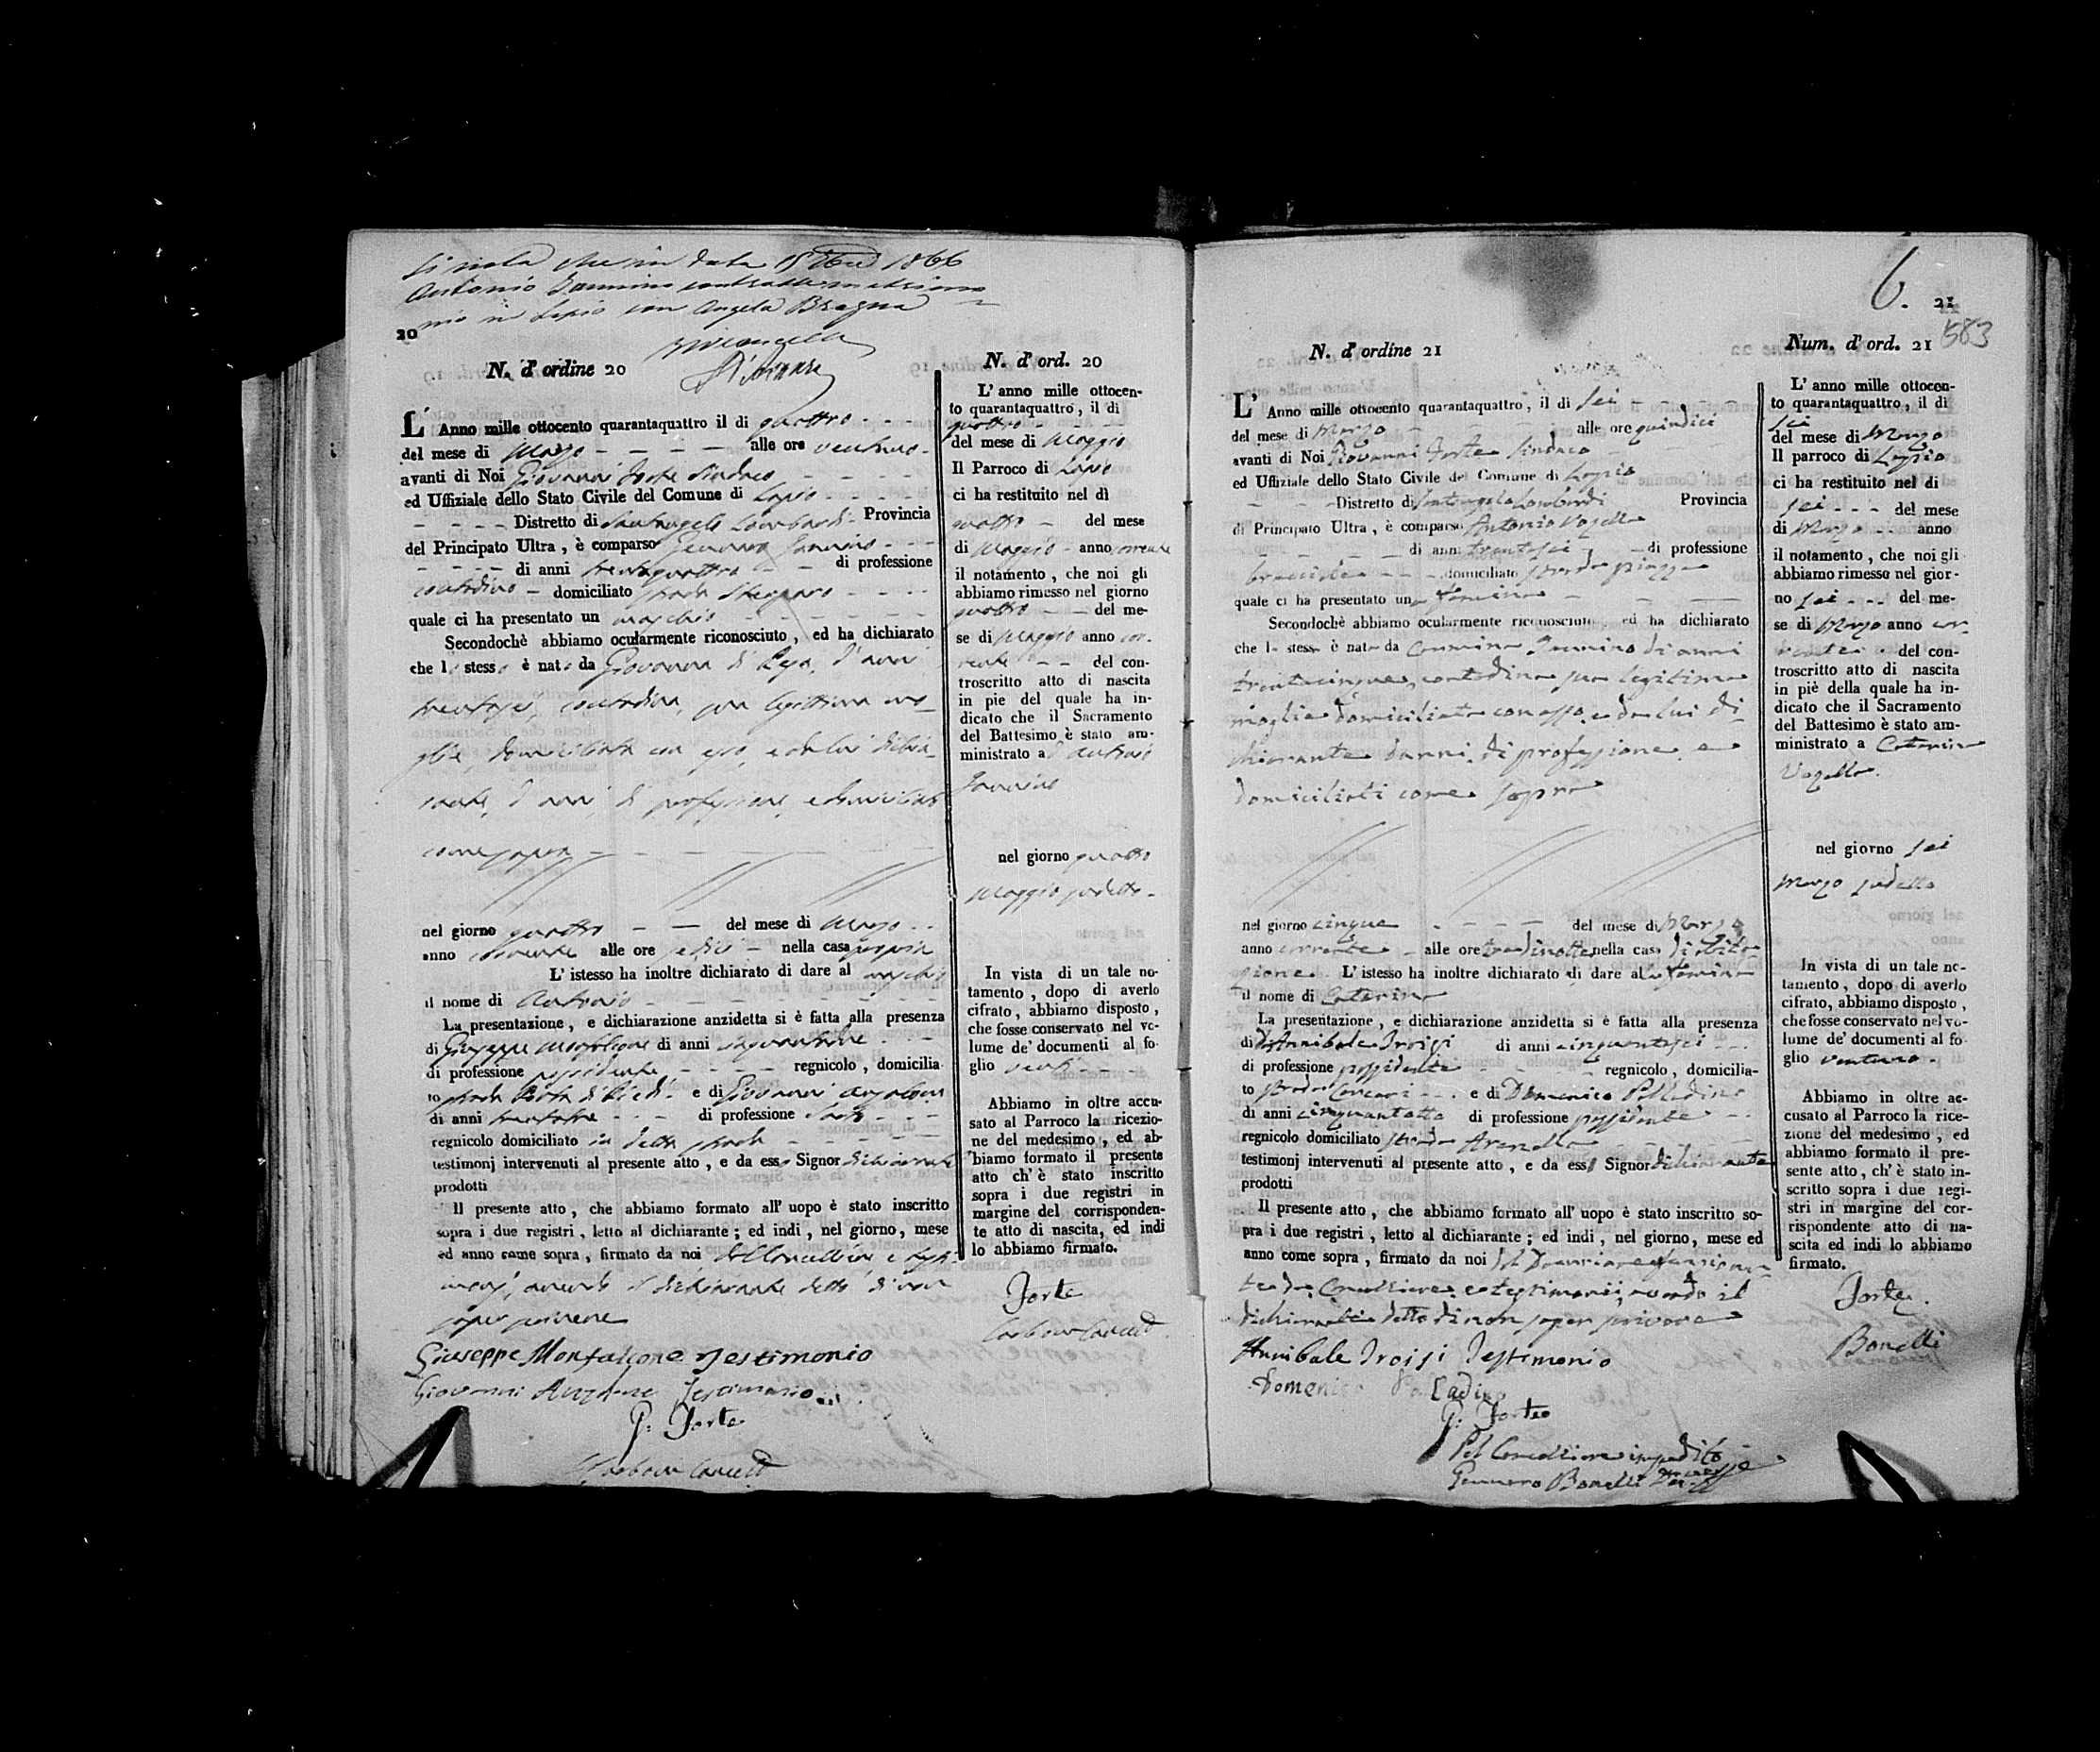 Si nota che in data 15 1866
Antonio Iannino contratto matrimo
nio in Lapio con Angela Bregna
20
N. d' ordine 20
L' Anno mille ottocento quarantaquattro il di quattro
del mese di Marzo alle ore ventuno
avanti di Noi Giovanni Forte Sindaco
ed Uffiziale dello Stato Civile del Comune di Lapio
Distretto di Santangelo Lombardi Provincia
del Principato Ultra , è comparso Gennaro Iannino
di anni trentaquattro di professione
contadino domiciliato strada
quale ci ha presentato un maschio
Secondochè abbiamo ocularmente riconosciuto , ed ha dichiarato
che lo stesso è nato da Giovanna di d'anni
trentasei, contadina, sua legittima mo
glie, domiciliata con esso, e da lui dichia
rante, d'anni, di professione, e domiciliato
come sopra
nel giorno quattro del mese di Marzo
anno corrente alle ore sedici nella casa propria
L' istesso ha inoltre dichiarato di dare al maschio
il nome di Antonio
La presentazione , e dichiarazione anzidetta si è fatta alla presenza
di Giuseppe Monfalcone di anni
di professione possidente regnicolo , domicilia
to strada Porta di e di Giovanni
di anni di professione
regnicolo domiciliato in detta strada
testimonj intervenuti al presente atto , e da esso Signor dichiarante
prodotti
Il presente atto , che abbiamo formato all' uopo è stato inscritto
sopra i due registri , letto al dichiarante ; ed indi , nel giorno , mese
ed anno come sopra , firmato da noi dal Cancelliere e testi
monj, avendo il dichiarante detto di non
saper scrivere
Giuseppe Monfalcone Testimonio
Giovanni Testimonio
G: Forte
N. d' ord. 20
L' anno mille ottocen-
to quarantaquattro , il di
quattro
del mese di Maggio
Il Parroco di Lapio
ci ha restituito nel dì
quattro del mese
di Maggio anno corrente
il notamento , che noi gli
abbiamo rimesso nel giorno
quattro del me-
se di Maggio anno cor-
rente del con-
troscritto atto di nascita
in pie del quale ha in-
dicato che il Sacramento
del Battesimo è stato am-
ministrato a d Antonio
Iannino
nel giorno quattro
Maggio sudetto
In vista di un tale no-
tamento , dopo di averlo
cifrato , abbiamo disposto ,
che fosse conservato nel vo-
lume de' documenti al fo-
glio venti
Abbiamo in oltre accu-
sato al Parroco la ricezio-
ne del medesimo , ed ab-
biamo formato il presente
atto ch' è stato inscritto
sopra i due registri in
margine del corrisponden-
te atto di nascita, ed indi
lo abbiamo firmato.
Forte
6. 21
583
N. d' ordine 21
L' Anno mille ottocento quarantaquattro , il di sei
del mese di Marzo alle ore quindici
avanti di Noi Giovanni Forte Sindaco
ed Uffiziale dello Stato Civile del Comune di Lapio
Distretto di Santangelo Lombardi Provincia
di Principato Ultra , è comparso Antonio Vozella
di anni trentasei di professione
bracciale domiciliato strada piazza
quale ci ha presentato una femina
Secondochè abbiamo ocularmente riconosciuto , ed ha dichiarato
che la stessa è nata da Carmina Iannino di anni
trentacinque, contadina sua legitima
moglie domiciliata con esso, e da lui di
chiarante d'anni, di professione, e
domiciliati come sopra
nel giorno cinque del mese di Marzo
anno corrente alle ore tre di notte nella casa di abita
zione L' istesso ha inoltre dichiarato di dare alla femina
il nome di Caterina
La presentazione , e dichiarazione anzidetta si è fatta alla presenza
di Annibale Troisi di anni cinquantasei
di professione possidente regnicolo , domicilia-
to strada e di Domenico Palladino
di anni cinquantotto di professione possidente
regnicolo domiciliato strada Arenella
testimonj intervenuti al presente atto , e da esso Signor dichiarante
prodotti
Il presente atto , che abbiamo formato all' uopo è stato inscritto so-
pra i due registri , letto al dichiarante ; ed indi , nel giorno , mese ed
anno come sopra , firmato da noi dal Decurione funzionan
te da Cancelliere, e testimonii, avendo il
dichiarante detto di non saper scrivere
Annibale Troisi Testimonio
Domenico Palladino
G: Forte
Pel Cancelliere impedito
Gennaro Bonelli
Num. d' ord. 21
L' anno mille ottocen-
to quarantaquattro , il di
sei
del mese di Marzo
Il parroco di Lapio
ci ha restituito nel di
sei del mese
di Marzo anno
il notamento , che noi gli
abbiamo rimesso nel gior-
no sei del me-
se di Marzo anno cor-
rente del con-
troscritto atto di nascita
in piè della quale ha in-
dicato che il Sacramento
del Battesimo è stato am-
ministrato a Caterina
Vozella
nel giorno sei
Marzo sudetto
In vista di un tale no-
tamento , dopo di averlo
cifrato, abbiamo disposto ,
che fosse conservato nel vo-
lume de' documenti al fo-
glio ventuno
Abbiamo in oltre ac-
cusato al Parroco la rice-
zione del medesimo , ed
abbiamo formato il pre-
sente atto , ch' è stato in-
scritto sopra i due regi-
stri in margine del cor-
rispondente atto di na-
scita ed indi lo abbiamo
firmato.
Forte
Bonelli